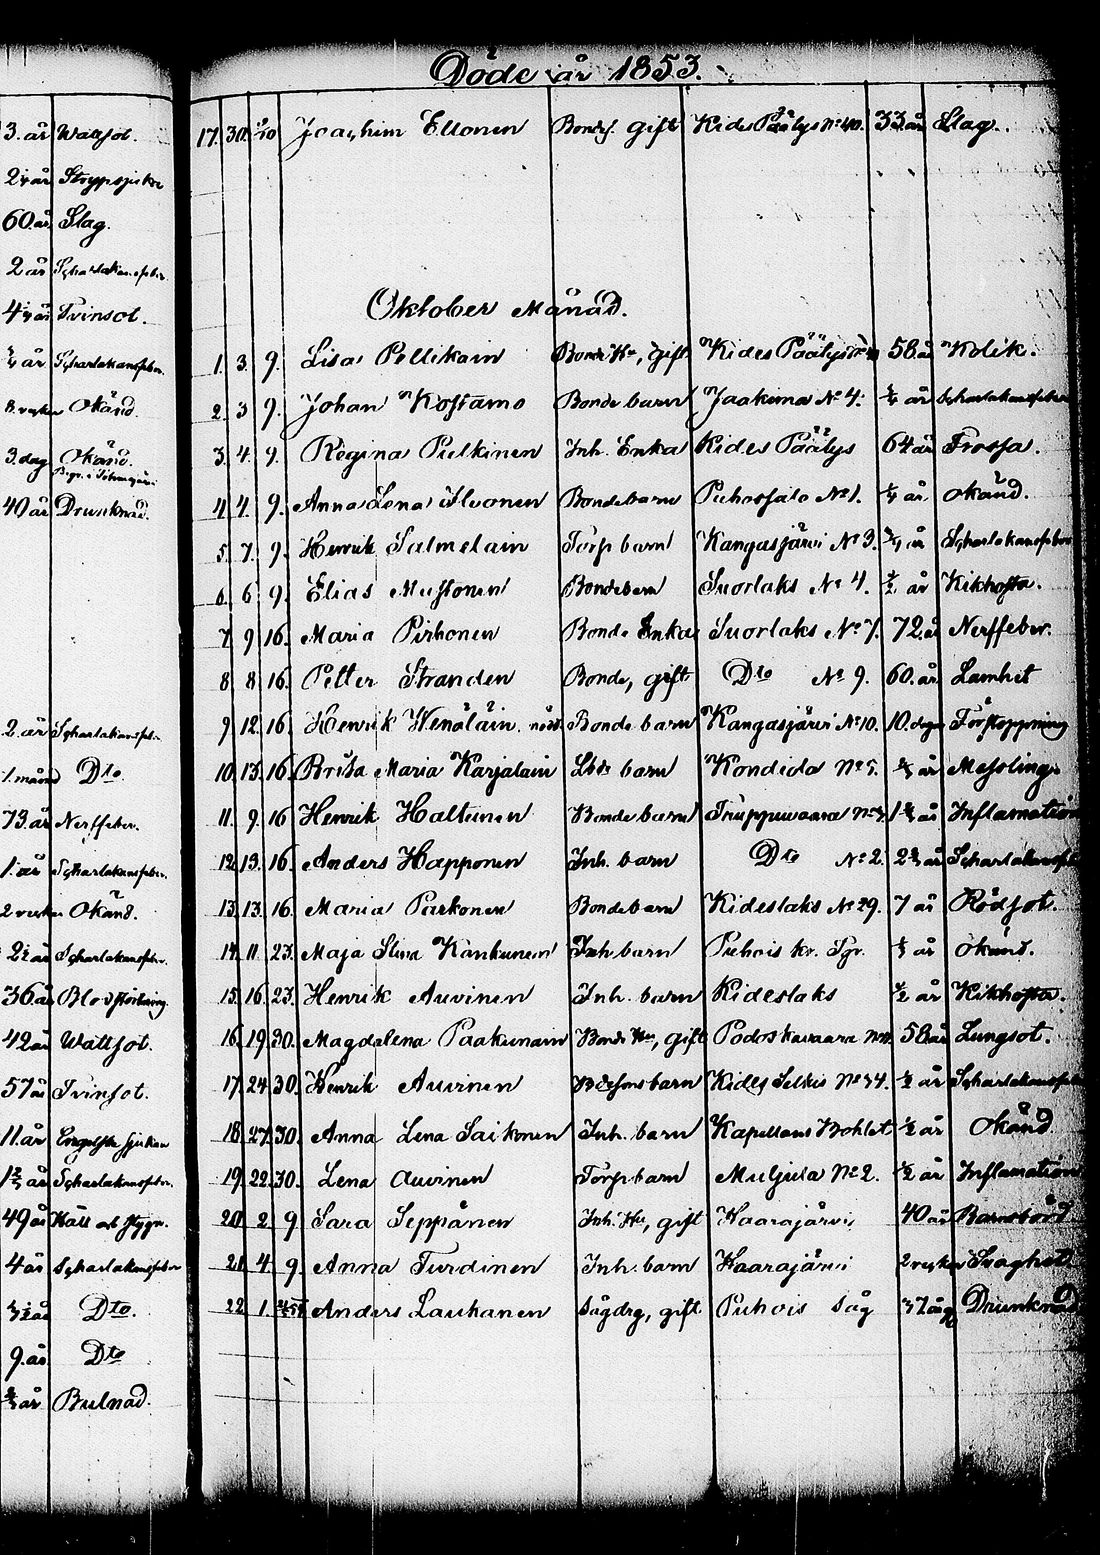 Döde år 1853.
3. år Wattsot.
2 1/4 år
60. år Slag.
2 år Scharlakansfeber.
4 år Tvinsot.
år Scharlakansfeber.
8. veckor Okänd.
3. dag Okänd.
40 år Drunknad.
2. år Scharlakansfeber
1. månad Dto.
73. år Nerffeber.
1. år Scharlakansfeber.
2 veckor Okänd.
2 1/2 år Scharlakansfeber.
36 år Blodstörtning.
42 år Wattsot.
57 år Tvinsot.
11. år Engelska sjukan
år Scharlakansfeber.
49 år Håll och stygn.
4 år Scharlakansfeber
år Dto.
9. år Dto
år Bulnad.
17. 30. Joachim Ellonen Bondes. gift Kides Päälys No 40. 33 år Slag.
Oktober Månad.
1. 3. 9. Lisa Pellikain Bonde Hu, gift Kides Päälys 58 år Kolik.
2. 3 9. Johan Kostamo Bonde barn Jaakima No 4. år Scharlakansfeber
3. 4. 9. Regina Pulkinen Inh. Enka Kides Päälys 64 år Trossa.
4. 4. 9. Anna Lena Ilvonen Bondebarn Puhossalo No 1. år okänd.
5. 7. 9. Henrik Salmelain Torp barn Kangasjärvi No 3. år Scharlakansfeber
6. 6 9. Elias Mustonen Bondebarn Suorlaks No 4. 1/2 år Kikhosta.
7 9 16. Maria Pirhonen Bonde Enka Suorlaks No 7. 72 år Nerffeber.
8 8 16. Petter Stranden Bonde, gift Dto No 9. 60. år Lamhet
9 12. 16. Henrik Wenäläin Bonde barn Kangasjärvi No 10. 10. dagar Förstoppning
10. 13. 16. Brita Maria Karjalain barn Kondido No 5. år Messling
11. 9. 16 Henrik Haltunen Bonde barn Truppuwaara år Inflamation
12. 13. 16. Anders Happonen Inh. barn Dto No 2. år Scharlakansfeber
13. 13. 16. Maria Parkonen Bondebarn Kideslaks No 29. 7 år Rödsot.
14. 11. 23. Maja Stina Kankunen Inh barn Puhois år okänd.
15. 16. 23. Henrik Auvinen Inh. barn Kideslaks 1/2 år Kikhosta.
16. 19. 30. Magdalena Paakunain Bonde Hu, gift Podoskavaara 58 år Lungsot.
17. 24. 30. Henrik Auvinen Kides Selkis No 34. 1/2 år Scharlakansfeber
18. 27. 30. Anna Lena Saikonen Inh. barn Kapellans Bohlet 1/2 år Okänd
19. 22. 30. Lena Auvinen Torp barn Muljula No 2. 1/2 år Inflamation
20. 2. 9 Sara Seppänen Inh. Hu, gift Haarajärvi 40 år Barnsbörd
21. 4. 9. Anna Turdinen Inh. barn Haarajärvi 2 veckor Svaghet
22. 1. Anders Lauhanen Sågdrg, gift Puhois Såg 37 år Drunknad